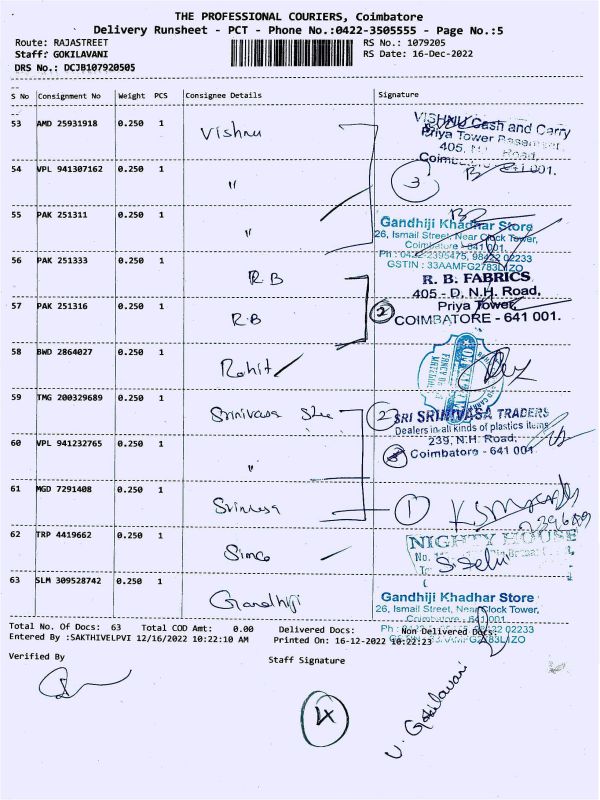 THE PROFESSIONAL COURIERS, Coimbatore
Delivery Runsheet - PCT - Phone No.:0422-3505555 - Page No.:5
Route: RAJASTREET RS No.: 1079205
Staff: GOKILAVANI RS Date: 16-Dec-2022
DRS No.: DCJB107920505
S No Consignment No Weight PCS Consignee Details Signature
53 AMD 25931918 0.250 1 Vishnu
VISHNU Cash and Carry
Priya Tower Basement,
405, N.H. Road,
Coimbatore - 641 001.
54 VPL 941307162 0.250 1 "
3
55 PAK 251311 0.250 1 "
Gandhiji Khadhar Store
26, Ismail Street, Near Clock Tower,
Coimbatore - 641 001.
Ph : 0422-2395475, 98422 02233
GSTIN : 33AAMFG2783L1ZO
56 PAK 251333 0.250 1 R.B
R. B. FABRICS
405 - D, N.H. Road,
Priya Tower,
COIMBATORE - 641 001.
57 PAK 251316 0.250 1 R.B
2
58 BWD 2864027 0.250 1 Rohit
59 TMG 200329689 0.250 1 Srinivasa Stee
2
SRI SRINIVASA TRADERS
Dealers in all kinds of plastics items
239, N.H. Road,
Coimbatore - 641 001
60 VPL 941232765 0.250 1 "
61 MGD 7291408 0.250 1 Srinivasa
1
62 TRP 4419662 0.250 1 Simco
NIGHTY HOUSE
S. Selvi
63 SLM 309528742 0.250 1 Gandhiji
Gandhiji Khadhar Store
26, Ismail Street, Near Clock Tower,
Coimbatore - 641 001
Total No. Of Docs: 63 Total COD Amt: 0.00 Delivered Docs: Non Delivered Docs:
Entered By :SAKTHIVELPVI 12/16/2022 10:22:10 AM Printed On: 16-12-2022 10:22:23
Verified By Staff Signature
4
V. Gokilavani